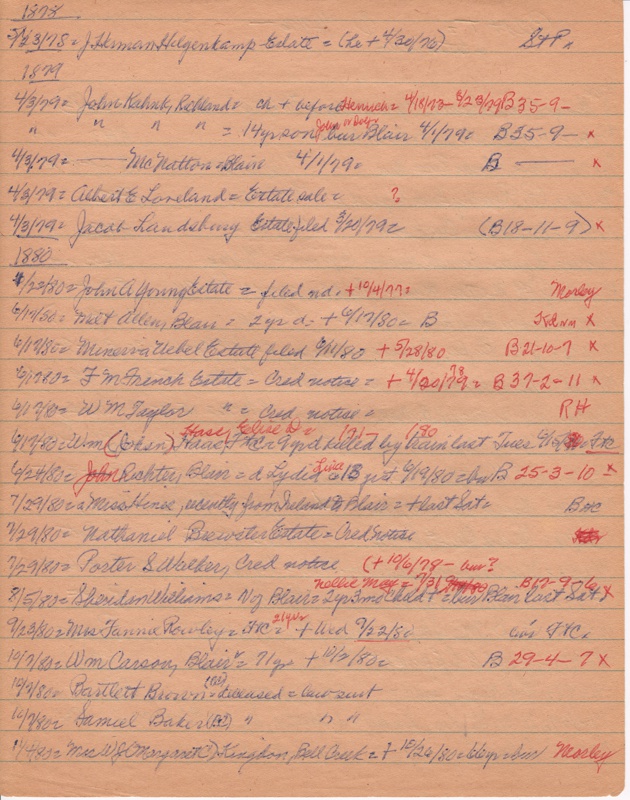 1878
5/23/78 = J. Herman Hilgenkamp Estate = (he + 4/30/76) St P x
1879
4/3/79 = John Kahnk, Richland = ch + before Henrich = 4/18/73 - 2/23/79 B35-9-
" " " " = 14 yr son John bur Blair 4/1/79 = B35-9- x
4/3/79 = —— McNatton = Blair 4/1/79 = B —— x
4/3/79 = Albert E Loveland = Estate sale = ?
4/3/79 = Jacob Landsburg Estate filed 3/20/79 = (B18-11-9) x
1880
1/22/80 = John A Young Estate = filed nd. + 10/4/77 = Morley
6/17/80 = Milt Allen, Blair = 2 yr d. = + 6/17/80 = B x
6/17/80 = Minerva Uebel Estate filed 6/11/80 + 5/28/80 B21-10-7 x
6/17/80 = F M French Estate = Cred notice = + 4/20/79 78 = B 37-2-11 x
6/17/80 = W M Taylor " = Cred notice = RH
6/17/80 = Wm Haase, Ft C = 9 yr d killed by train last Tues FtC
6/24/80 = John Richter, Blair = d Lydia 6/19/80 = bur B 25-3-10 x
7/29/80 = a Miss Hines, recently from Ireland to Blair = + last Sat =
7/29/80 = Nathaniel Brewster Estate = Cred notice
7/29/80 = Porter S Walker, Cred notice (+ 10/6/78 - bur?
Nellie May = 7/31/80 B17-9-6
8/5/80 = Sheridan Williams = N of Blair = 2 yr 3 mo child + = bur Blair last Sat x
9/23/80 = Mrs. Fannie Rowley = Ft C = 21 yrs + Wed 9/22/80 bur Ft C.
10/7/80 = Wm Carson, Blair = 71 yr + 10/2/80 = B 29-4-7 x
10/7/80 = Bartlett Brown = deceased = law suit
10/7/80 = Samuel Baker " " "
11/4/80 = Mrs W J (Margaret) Kingdon, Bell Creek = + 10/26/80 = 66 yr = bur Morley